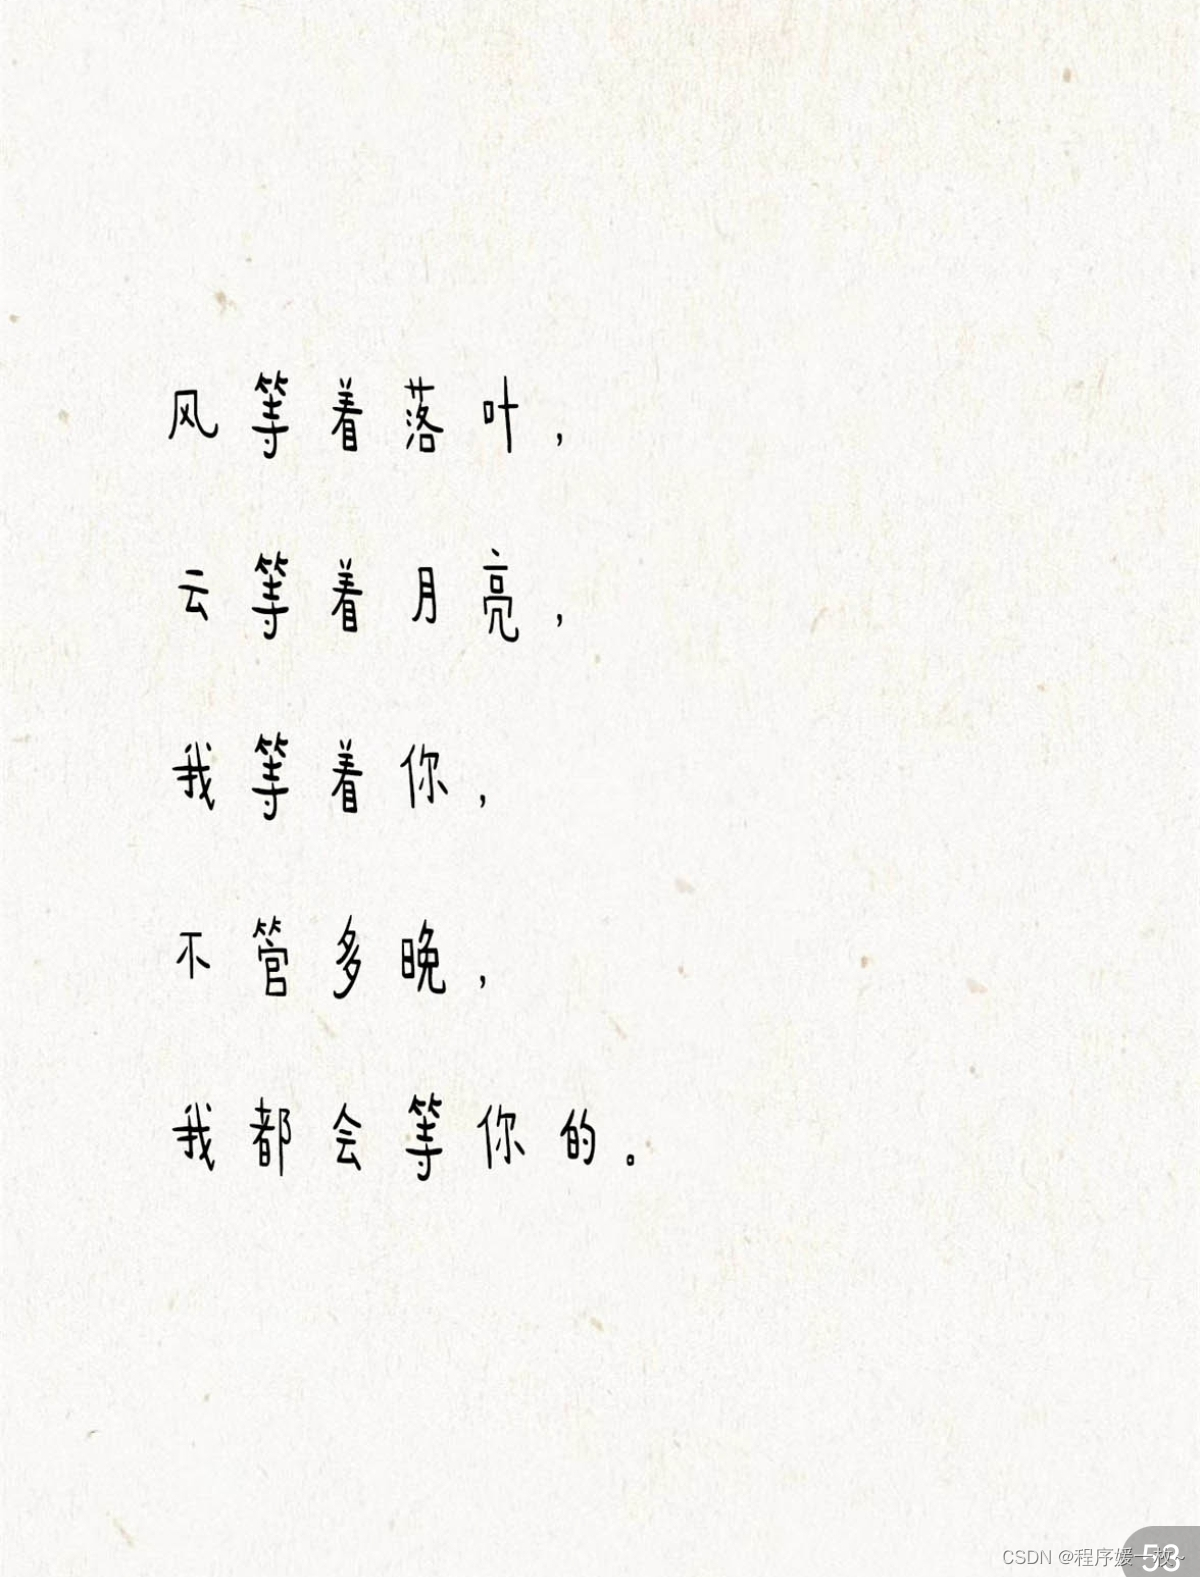 风等着落叶，
云等着月亮，
我等着你，
不管多晚，
我都会等你的。
CSDN @程序媛一枚~
53